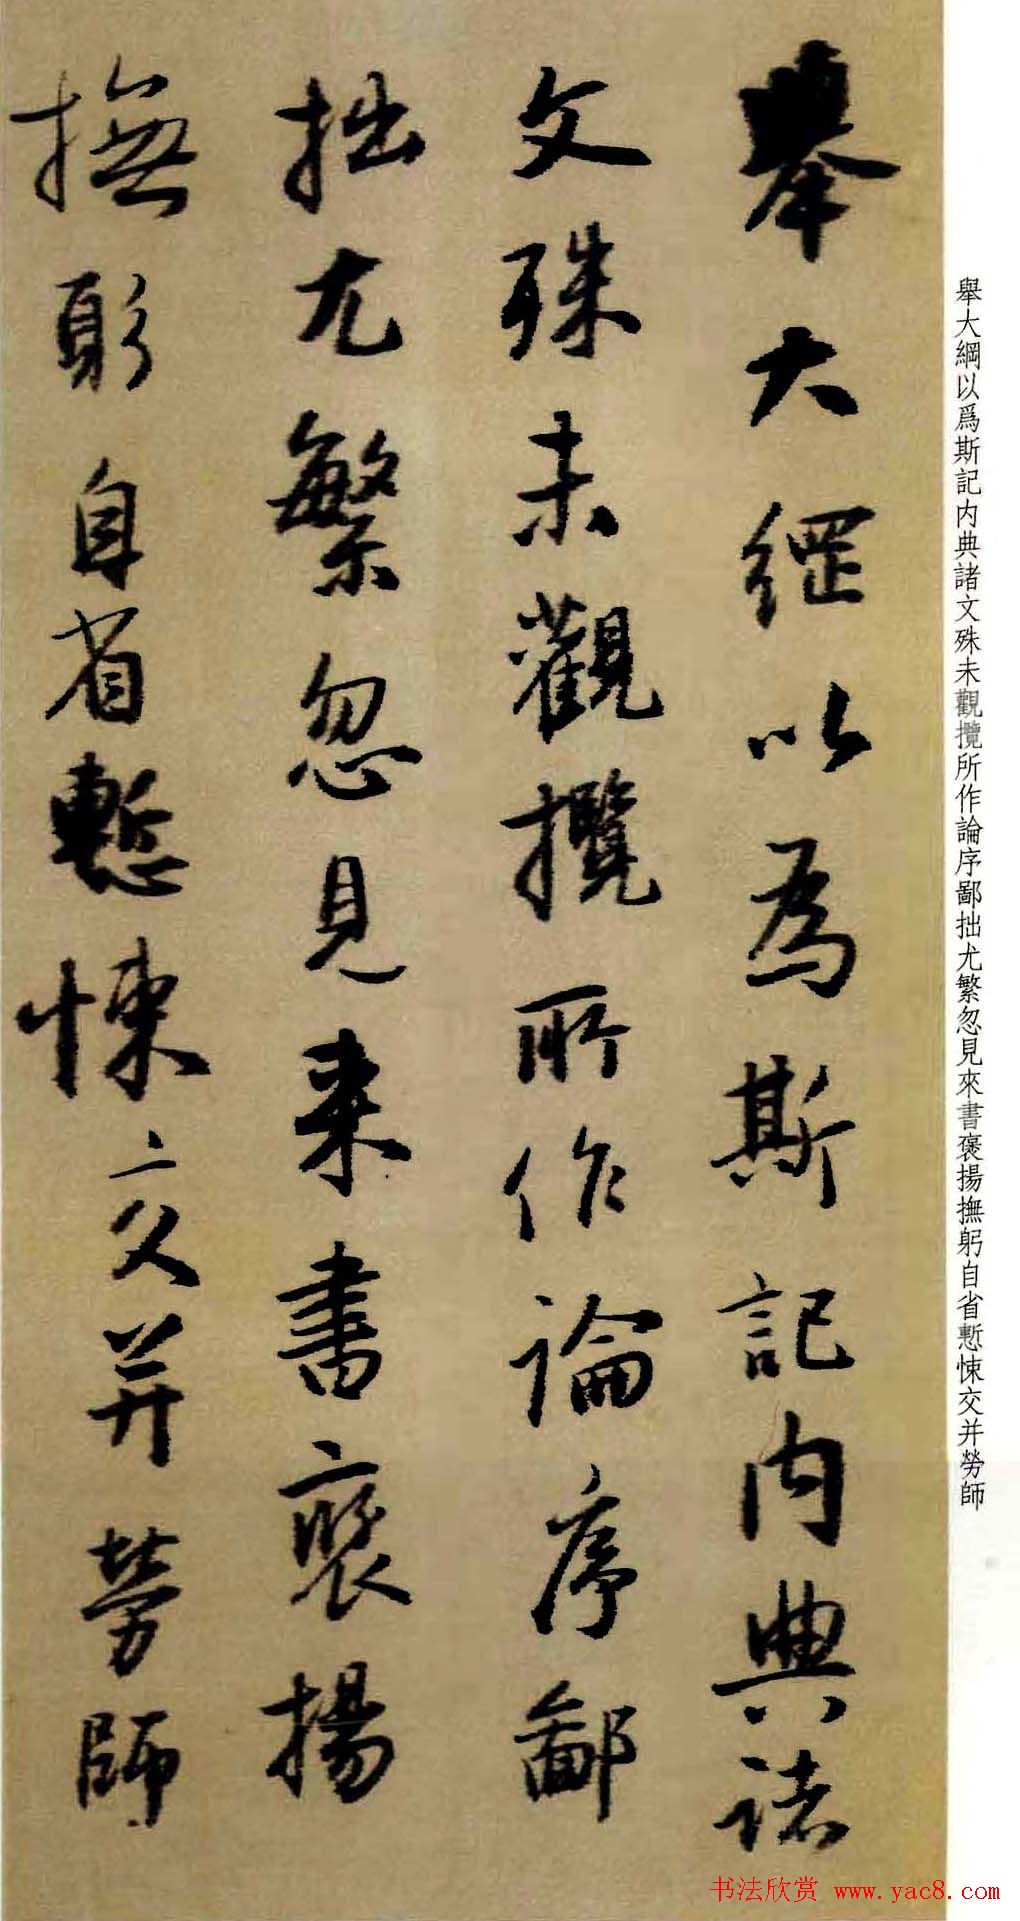 舉大綱以為斯記内典諸
文殊未觀攬所作論序鄙
拙尤繁忽見来書褒揚
撫躬自省慙悚交并勞師
舉大綱以爲斯記内典諸文殊未觀攬所作論序鄙拙尤繁忽見來書褒揚撫躬自省慙悚交并勞師
书法欣赏 www.yac8.com